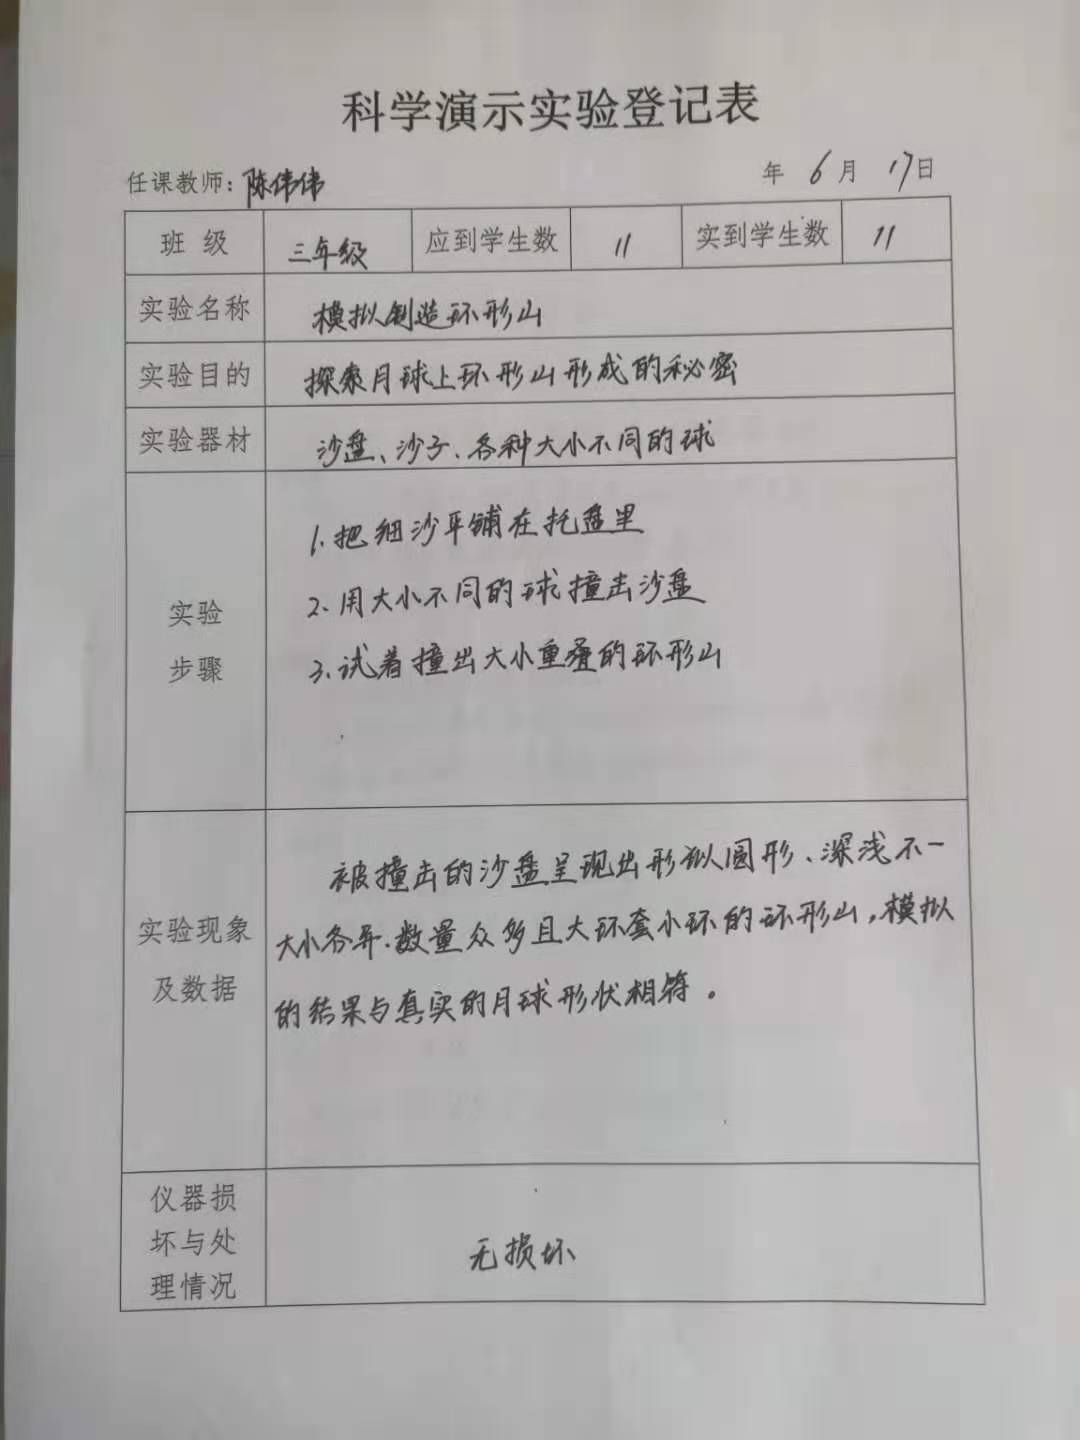 科学演示实验登记表
任课教师：陈伟伟 年 6月 17日
班 级 三年级 应到学生数 11 实到学生数 11
实验名称 模拟制造环形山
实验目的 探索月球上环形山形成的秘密
实验器材 沙盘、沙子、各种大小不同的球
实验
步骤
1.把细沙平铺在托盘里
2.用大小不同的球撞击沙盘
3.试着撞出大小重叠的环形山
实验现象
及数据
被撞击的沙盘呈现出形似圆形、深浅不一
大小各异.数量众多且大环套小环的环形山,模拟
的结果与真实的月球形状相符。
仪器损
坏与处
理情况
无损坏